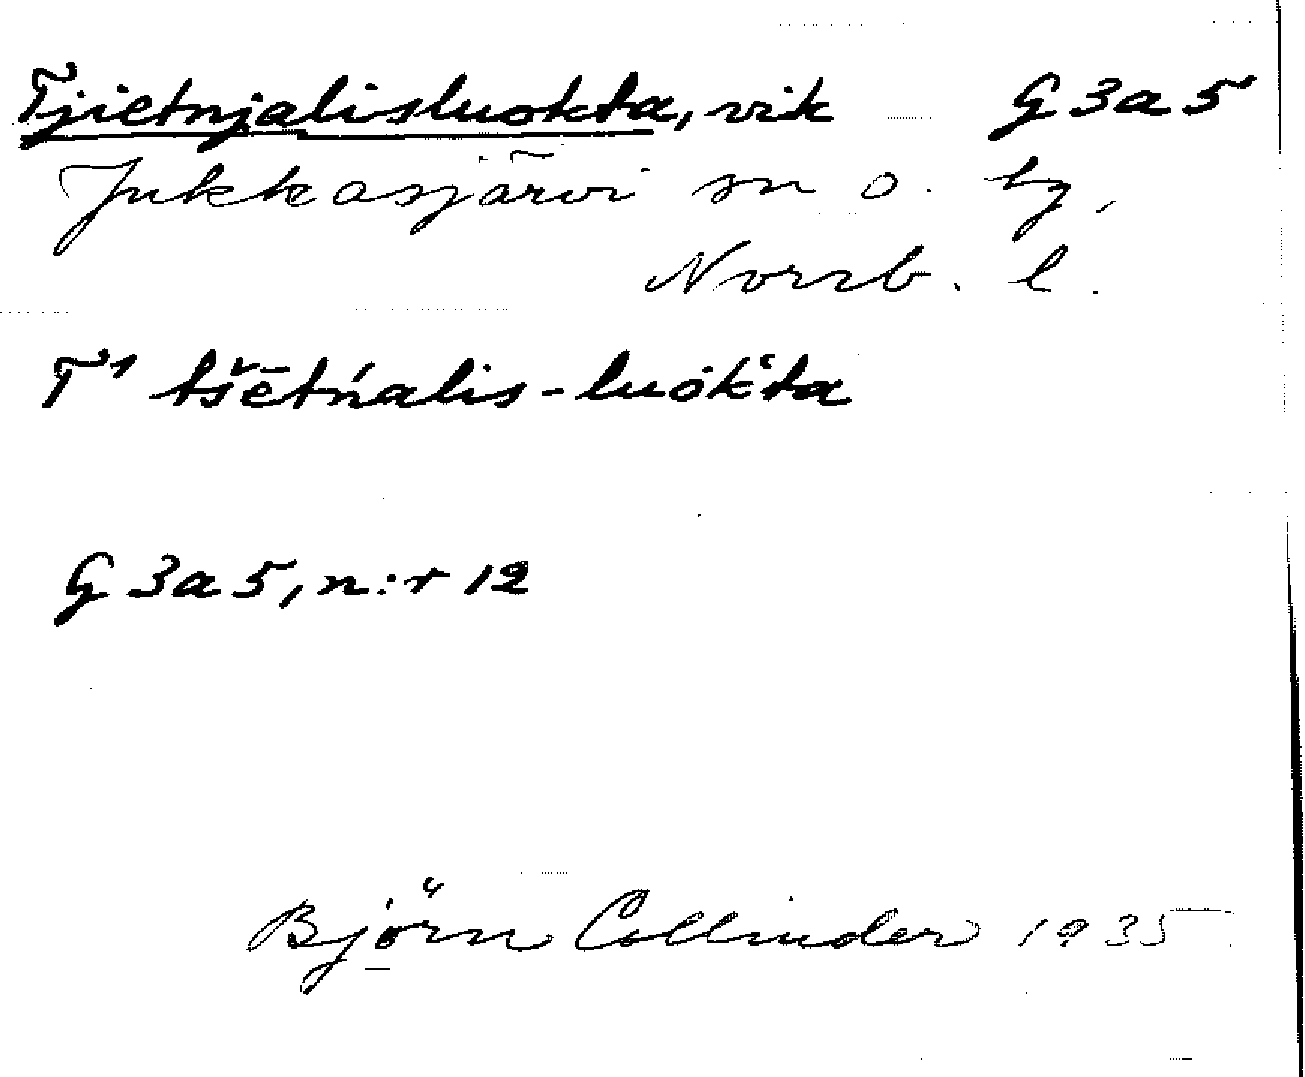 Tjietnjalisluokta, vik G 3 a 5
Jukkasjärvi sn o. by,
Norrb. l.
T¹ tšētńalis-luok̔ta
G 3 a 5, n:r 12
Björn Collinder 1935